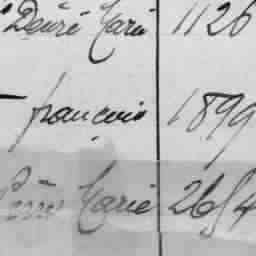 Désiré Marie 1126
françois 1899
Pierre Marie 2654